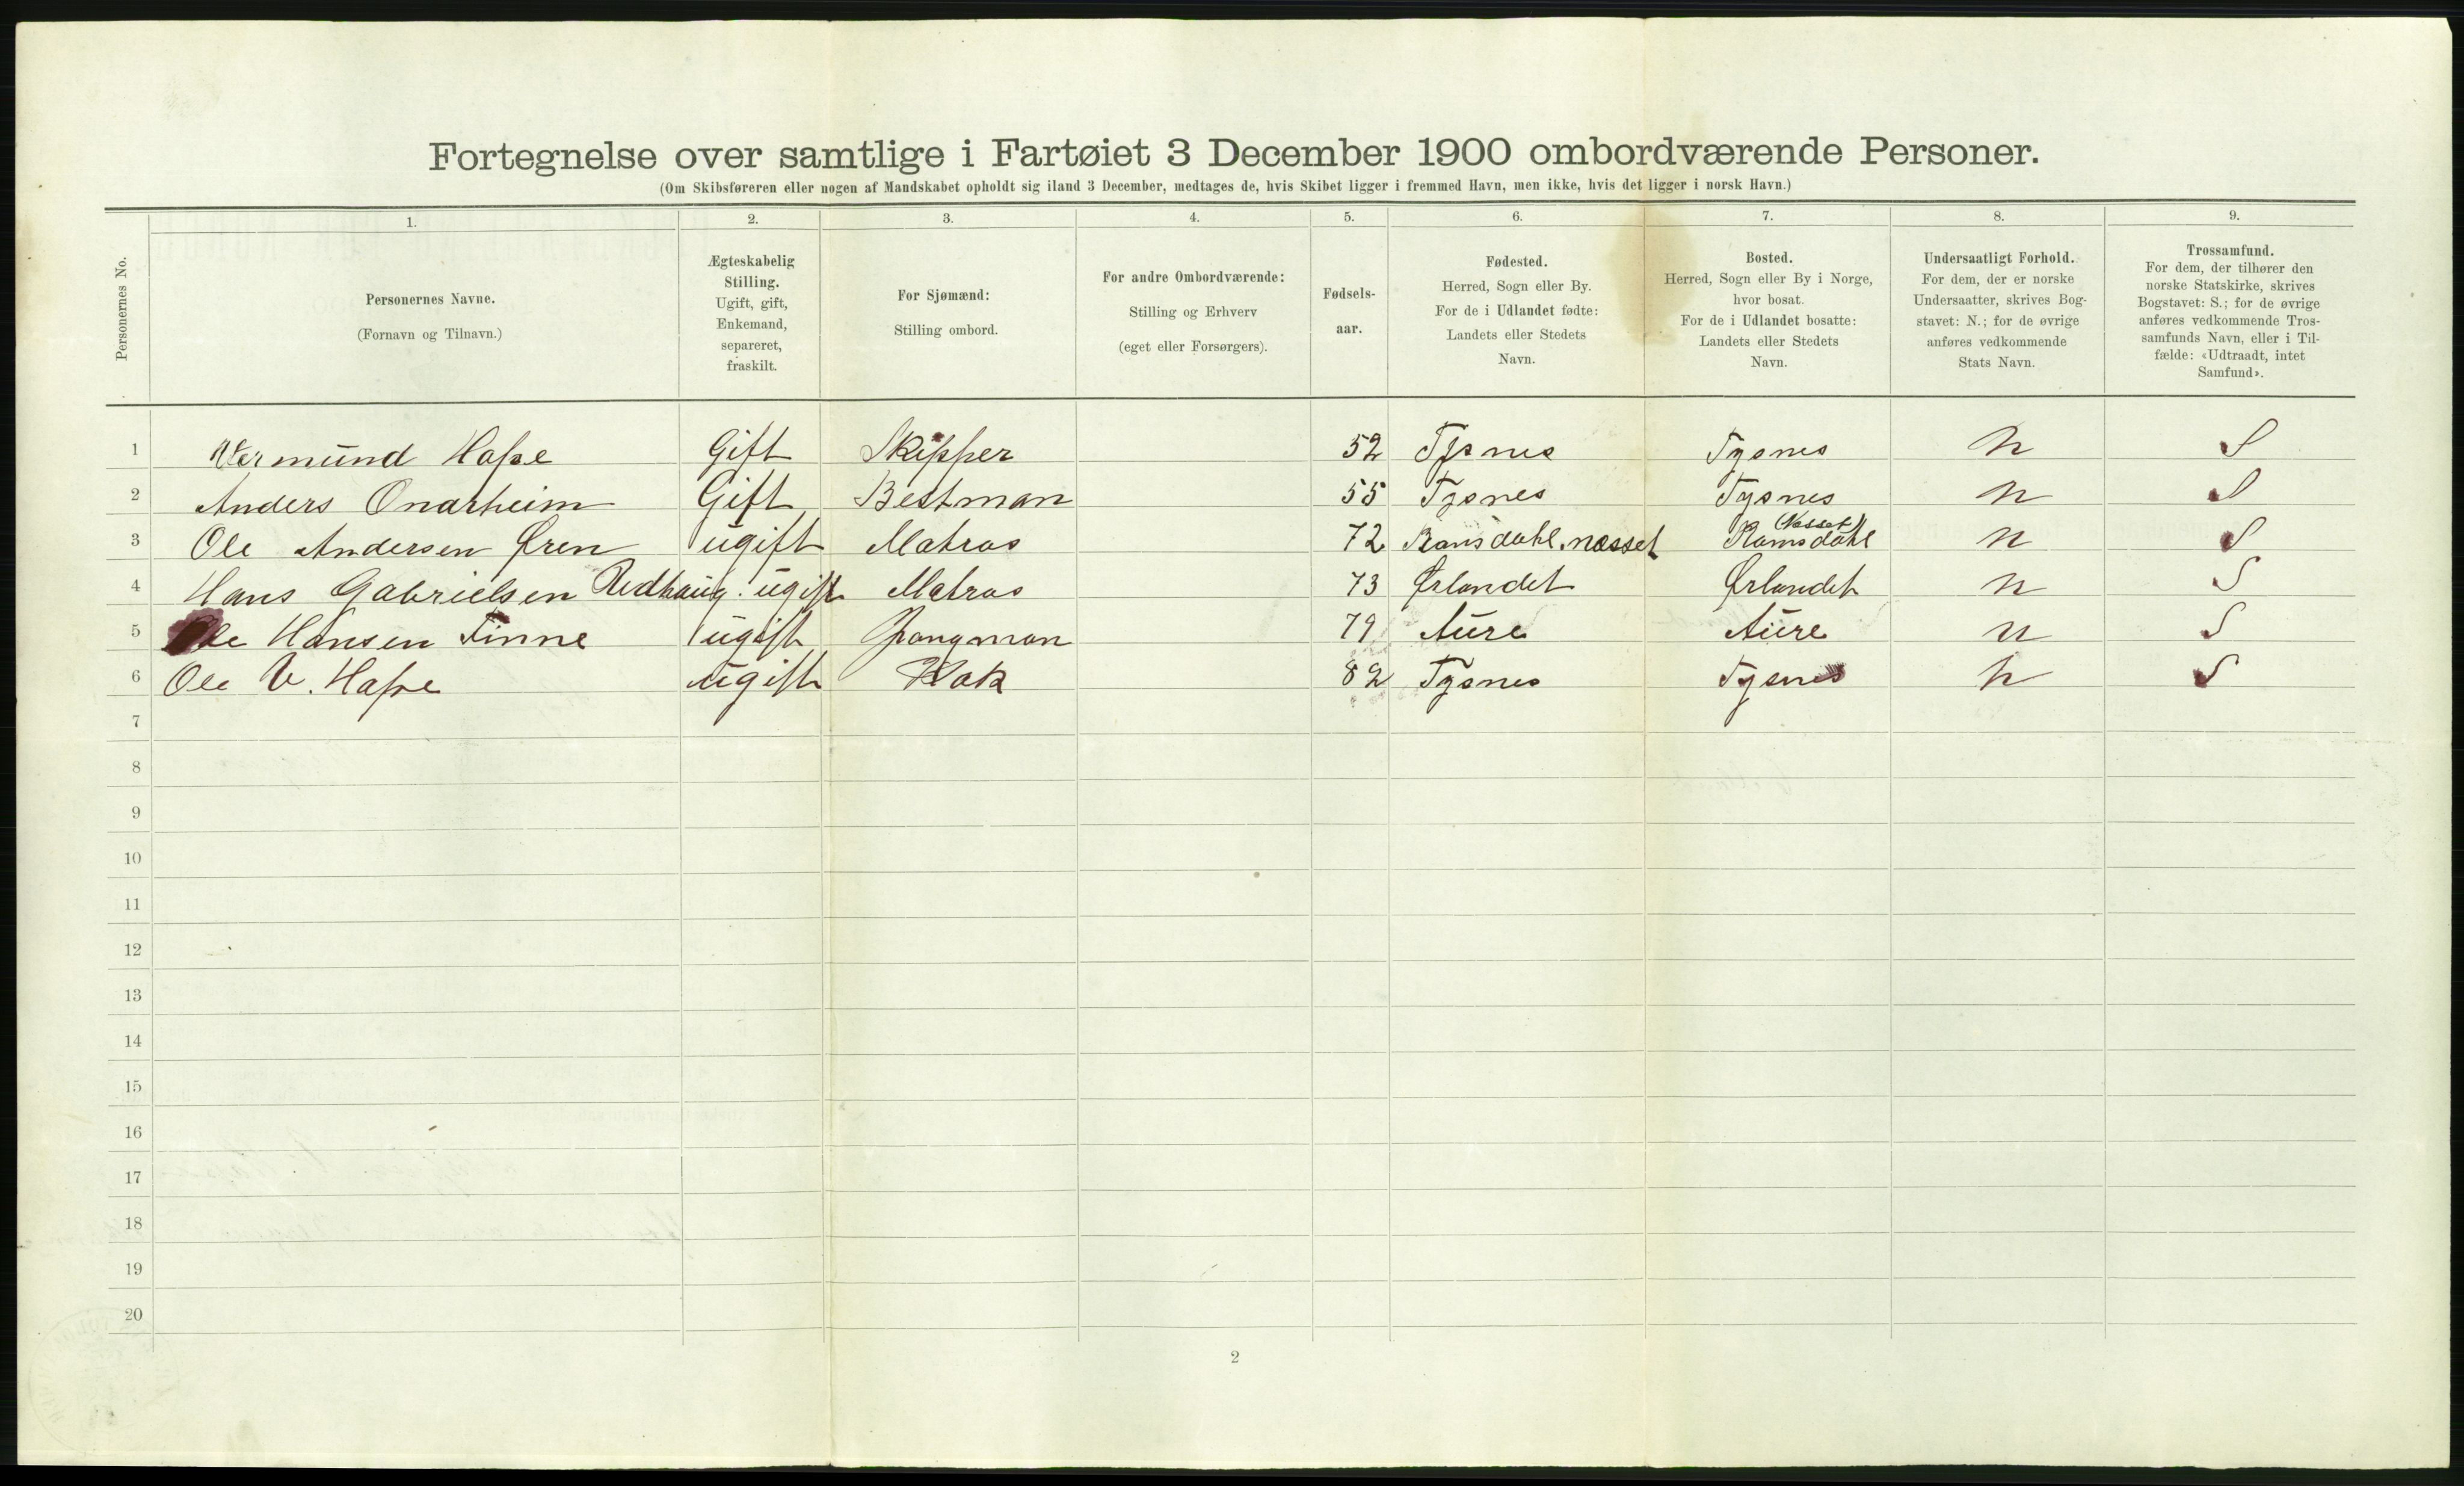 Fortegnelse over samtlige i Fartøiet 3 December 1900 ombordværende Personer.
(Om Skibsføreren eller nogen af Mandskabet opholdt sig iland 3 December, medtages de, hvis Skibet ligger i fremmed Havn, men ikke, hvis det ligger i norsk Havn.)
1. 2. 3. 4. 5. 6. 7. 8. 9.
Personernes No.
Personernes Navne.
(Fornavn og Tilnavn.)
Ægteskabelig
Stilling.
Ugift, gift,
Enkemand,
separeret,
fraskilt.
For Sjømænd:
Stilling ombord.
For andre Ombordværende:
Stilling og Erhverv
(eget eller Forsørgers).
Fødsels-
aar.
Fødested.
Herred, Sogn eller By.
For de i Udlandet fødte:
Landets eller Stedets
Navn.
Bosted.
Herred, Sogn eller By i Norge,
hvor bosat.
For de i Udlandet bosatte:
Landets eller Stedets
Navn.
Undersaatligt Forhold.
For dem, der er norske
Undersaatter, skrives Bog-
stavet: N.; for de øvrige
anføres vedkommende
Stats Navn.
Trossamfund.
For dem, der tilhører den
norske Statskirke, skrives
Bogstavet: S.; for de øvrige
anføres vedkommende Tros-
samfunds Navn, eller i Til-
fælde: «Udtraadt, intet
Samfund».
1 Vermund Hasse Gift Skipper 52 Tysnes Tysnes n S
2 Anders Onarheim Gift Bestman 55 Tysnes Tysnes n S
(Nesset)
3 Ole Andersen Øren ugift Matros 72 Ramsdahl. næsset Ramsdahl n S
4 Hans Gabrielsen ugift Matros 73 Ørlandet Ørlandet n S
5 Ole Hansen Finne ugift Jongman 79 Aure Aure n S
6 Ole V. Hasse ugift Kok 82 Tysnes Tysnes n S
7
8
9
10
11
12
13
14
15
16
17
18
19
20
2